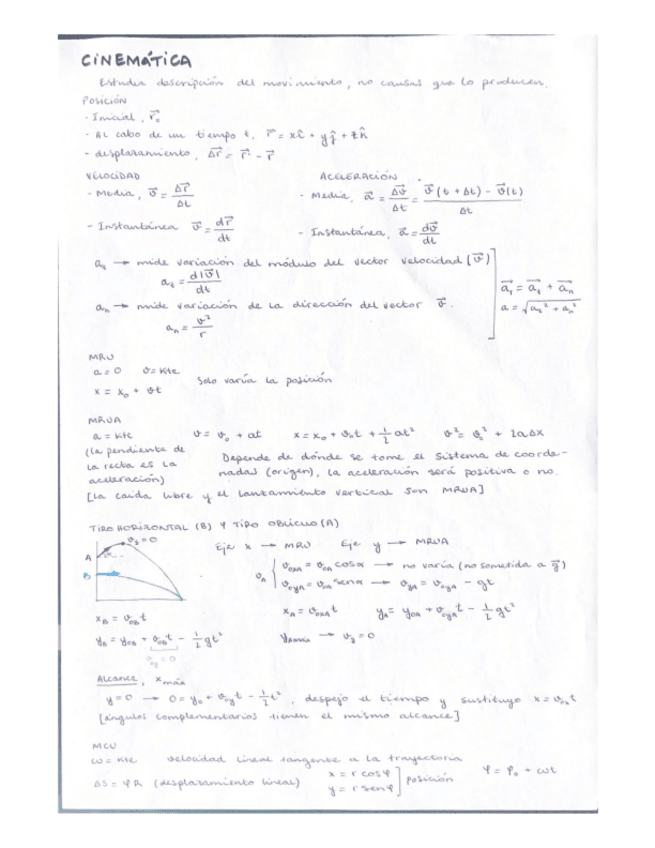 CINEMÁTICA
Estudia descripción del movimiento, no causas que lo producen.
POSICIÓN
- Inicial, r⃗₀
- Al cabo de un tiempo t, r⃗ = xî + yĵ + zk̂
- desplazamiento, Δr⃗ = r⃗' - r⃗
VELOCIDAD
- Media, v⃗ = Δr⃗/Δt
- Instantánea v⃗ = dr⃗/dt
ACELERACIÓN
- Media, a⃗ = Δv⃗/Δt = (v⃗(t + Δt) - v⃗(t))/Δt
- Instantánea, a⃗ = dv⃗/dt
aₜ → mide variación del módulo del vector velocidad (v⃗)
aₜ = d|v⃗|/dt
aₙ → mide variación de la dirección del vector v⃗.
aₙ = v²/r
a⃗ₜ = a⃗ₜ + a⃗ₙ
a = √(aₜ² + aₙ²)
MRU
a = 0 v = Kte
x = x₀ + vt
Solo varía la posición
MRUA
a = Kte v = v₀ + at x = x₀ + v₀t + ½at² v² = v₀² + 2aΔx
(la pendiente de
la recta es la
aceleración)
Depende de dónde se tome el sistema de coorde-
nadas (origen), la aceleración será positiva o no.
[La caída libre y el lanzamiento vertical son MRUA]
TIRO HORIZONTAL (B) Y TIRO OBLICUO (A)
A
B
v_y = 0
Eje x → MRU Eje y → MRUA
v_A { v_0xA = v_0A cosα → no varía (no sometida a g⃗)
v_0yA = v_0A senα → v_yA = v_0yA - gt
x_B = v_0B t
y_B = y_0B + v_0B t - ½gt²
v_0y = 0
x_A = v_0xA t y_A = y_0A + v_0yA t - ½gt²
→ v_y = 0
Alcance, x máx
y = 0 → 0 = y₀ + v_0y t - ½t², despejo el tiempo y sustituyo x = v_0x t
[ángulos complementarios tienen el mismo alcance]
MCU
ω = Kte velocidad lineal tangente a la trayectoria
ΔS = φR (desplazamiento lineal)
x = r cosφ
y = r senφ
] posición
φ = φ₀ + ωt